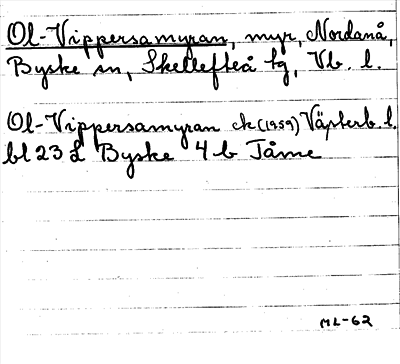 Ol-Vippersamyran, myr, Nordanå,
Byske sn, Skellefteå tg, Vb. l.
Ol-Vippersamyran ek (1959) Västerb. l.
bl 23 L Byske 4 b Tåme
ML-62